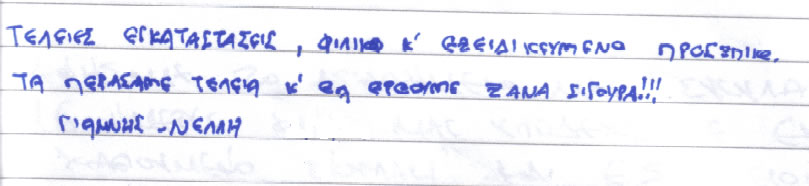 ΤΕΛΕΙΕΣ ΕΓΚΑΤΑΣΤΑΣΕΙΣ, ΦΙΛΙΚΟ Κ' ΕΞΕΙΔΙΚΕΥΜΕΝΟ ΠΡΟΣΩΠΙΚΟ.
ΤΑ ΠΕΡΑΣΑΜΕ ΤΕΛΕΙΑ Κ' ΘΑ ΕΡΘΟΥΜΕ ΞΑΝΑ ΣΙΓΟΥΡΑ!!!
ΓΙΑΝΝΗΣ - ΝΕΛΛΗ